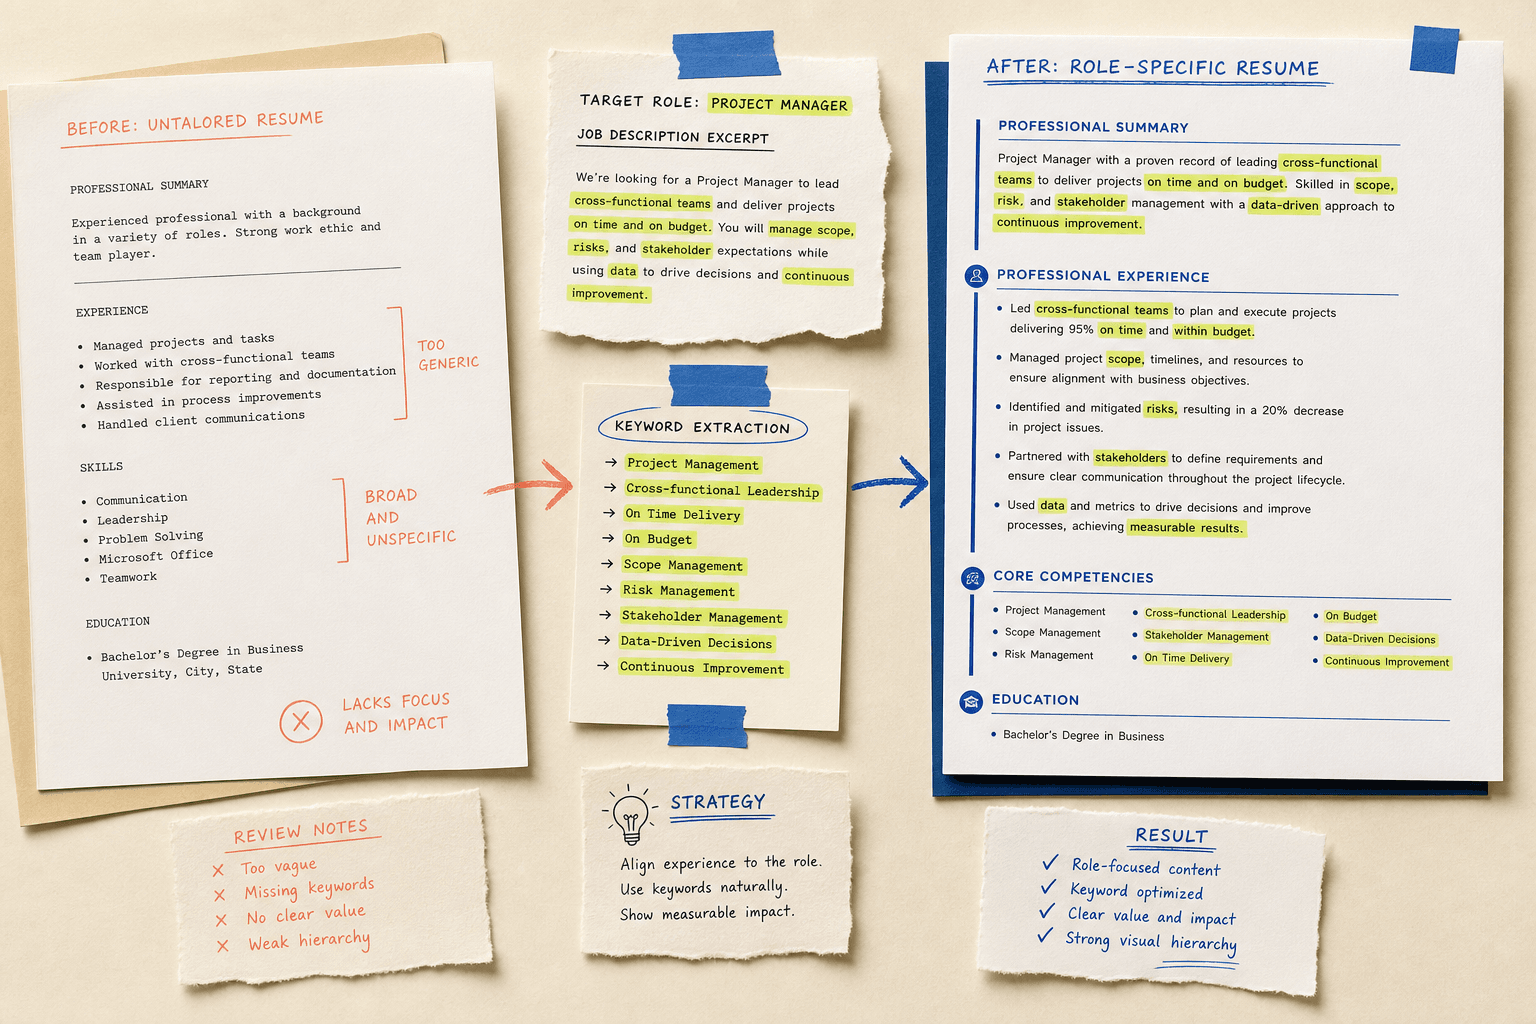 BEFORE: UNTALORED RESUME
PROFESSIONAL SUMMARY
Experienced professional with a background
in a variety of roles. Strong work ethic and
team player.
EXPERIENCE
• Managed projects and tasks
• Worked with cross-functional teams
• Responsible for reporting and documentation
• Assisted in process improvements
• Handled client communications
TOO
GENERIC
SKILLS
• Communication
• Leadership
• Problem Solving
• Microsoft Office
• Teamwork
BROAD
AND
UNSPECIFIC
EDUCATION
• Bachelor's Degree in Business
University, City, State
LACKS FOCUS
AND IMPACT
REVIEW NOTES
✗ Too vague
✗ Missing keywords
✗ No clear value
✗ Weak hierarchy
TARGET ROLE: PROJECT MANAGER
JOB DESCRIPTION EXCERPT
We're looking for a Project Manager to lead
cross-functional teams and deliver projects
on time and on budget. You will manage scope,
risks, and stakeholder expectations while
using data to drive decisions and continuous
improvement.
KEYWORD EXTRACTION
→ Project Management
→ Cross-functional Leadership
→ On Time Delivery
→ On Budget
→ Scope Management
→ Risk Management
→ Stakeholder Management
→ Data-Driven Decisions
→ Continuous Improvement
STRATEGY
Align experience to the role.
Use keywords naturally.
Show measurable impact.
AFTER: ROLE-SPECIFIC RESUME
PROFESSIONAL SUMMARY
Project Manager with a proven record of leading cross-functional
teams to deliver projects on time and on budget. Skilled in scope,
risk, and stakeholder management with a data-driven approach to
continuous improvement.
PROFESSIONAL EXPERIENCE
• Led cross-functional teams to plan and execute projects
delivering 95% on time and within budget.
• Managed project scope, timelines, and resources to
ensure alignment with business objectives.
• Identified and mitigated risks, resulting in a 20% decrease
in project issues.
• Partnered with stakeholders to define requirements and
ensure clear communication throughout the project lifecycle.
• Used data and metrics to drive decisions and improve
processes, achieving measurable results.
CORE COMPETENCIES
• Project Management • Cross-functional Leadership • On Budget
• Scope Management • Stakeholder Management • Data-Driven Decisions
• Risk Management • On Time Delivery • Continuous Improvement
EDUCATION
• Bachelor's Degree in Business
RESULT
✓ Role-focused content
✓ Keyword optimized
✓ Clear value and impact
✓ Strong visual hierarchy